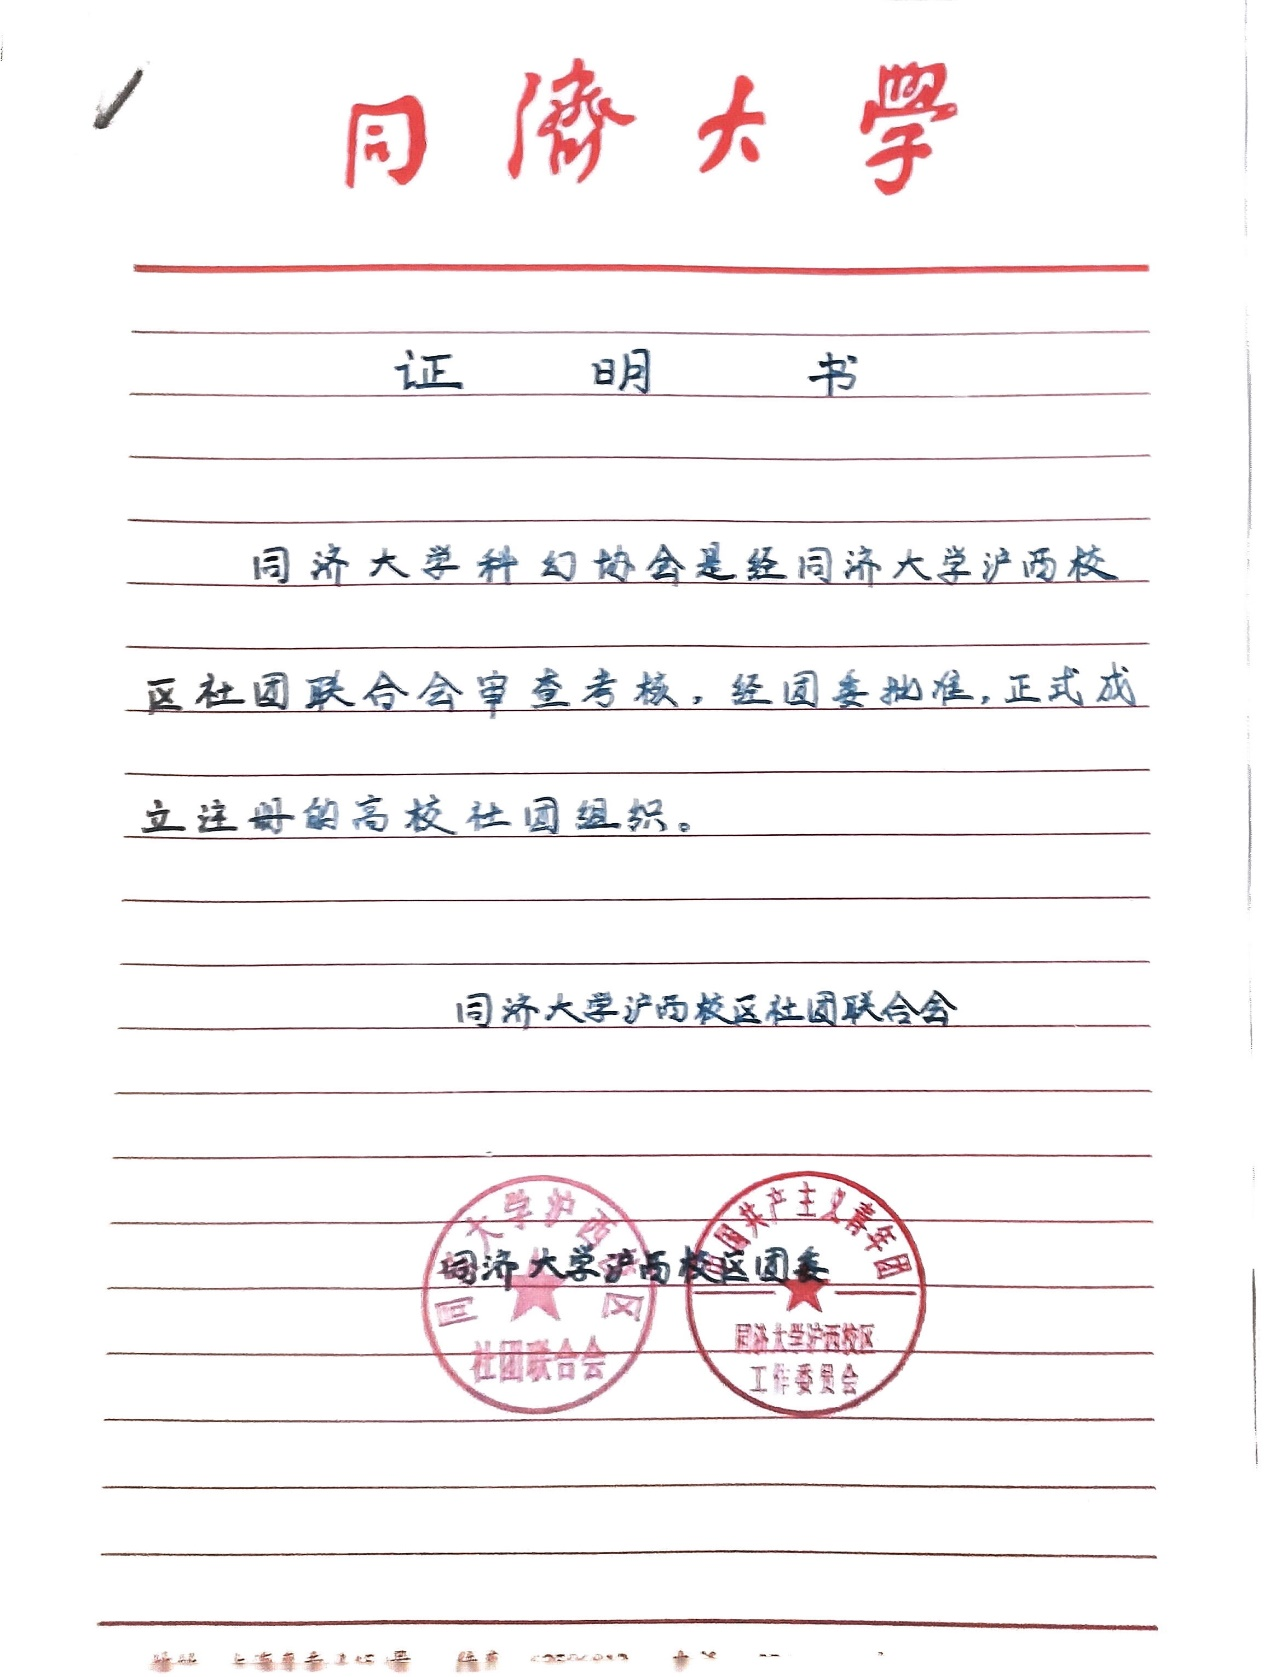 同濟大學
证明书
同济大学科幻协会是经同济大学沪西校
区社团联合会审查考核，经团委批准，正式成
立注册的高校社团组织。
同济大学沪西校区社团联合会
同济大学沪西校区团委
大学沪西
区
社团联合会
国共产主义青年团
同济大学沪西校区
工作委员会